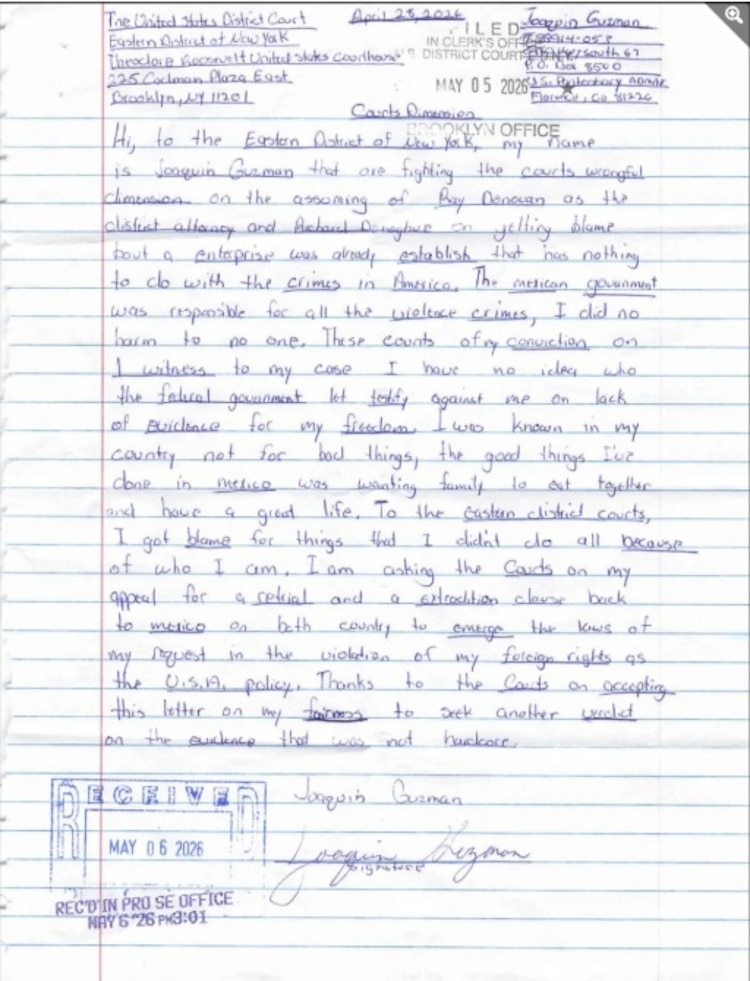 The United States District Court
Eastern District of New York
Theodore Roosevelt United States Courthouse
225 Cadman Plaza East
Brooklyn, NY 11201
April 28, 2026
FILED
IN CLERK'S OFF
DISTRICT COURT
MAY 05 2026
BROOKLYN OFFICE
Joaquin Guzman
P.O. Box 8500
U.S. Penitentiary ADMAX
Florence, Co 81226
Courts Dimension
Hi, to the Eastern District of New York, my name
is Joaquin Guzman that are fighting the courts wrongful
dimension on the assuming of Ray Donovan as the
district attorney and Richard Donoghue on getting blame
bout a enterprise was already establish that has nothing
to do with the crimes in America. The mexican government
was responsible for all the violence crimes, I did no
harm to no one. These counts of my conviction on
1 witness to my case I have no idea who
the federal government let testify against me on lack
of evidence for my freedom. I was known in my
country not for bad things, the good things I've
done in mexico was wanting family to eat together
and have a great life. To the Eastern district courts,
I got blame for things that I didn't do all because
of who I am. I am asking the Courts on my
appeal for a retrial and a extradition clause back
to mexico on both country to emerge the laws of
my request in the violation of my foreign rights as
the U.S.A. policy. Thanks to the Courts on accepting
this letter on my fairness to seek another verdict
on the evidence that was not hardcore.
Joaquin Guzman
Joaquin Guzman
Signature
RECEIVED
MAY 06 2026
REC'D IN PRO SE OFFICE
MAY 6 '26 PM3:01